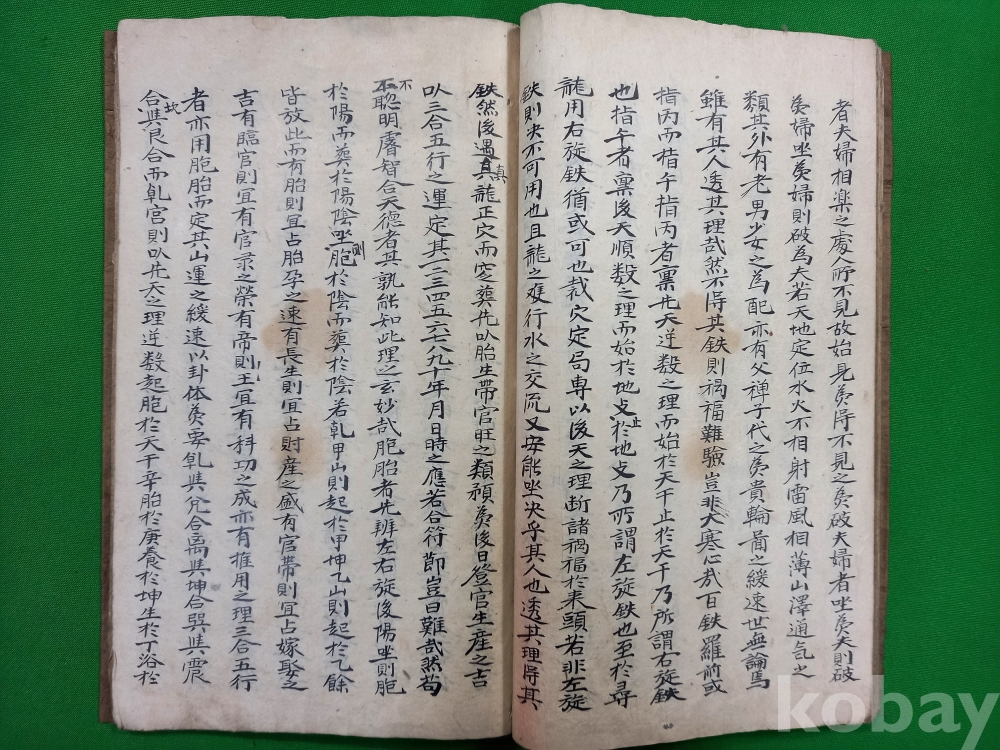 者夫婦相樂之處人所不見故始見矣得不見之矣破夫婦者坐矣夫則破
矣婦坐矣婦則破為夫若天地定位水火不相射雷風相薄山澤通氣之
類其外有老男少女之為配亦有父禅子代之矣貴輪啚之緩速世無論焉
雖有其人透其理哉然不得其鉄則禍福難驗豈非大寒心哉百鉄羅前或
指丙而指午指丙者禀先天逆数之理而始於天干止於天干乃所謂右旋鉄
也指午者禀後天順数之理而始於地支止於地支乃所謂左旋鉄也至於尋
龍用右旋鉄猶或可也裁穴定局専以後天之理断諸禍福於来頭若非左旋
鉄則决不可用也且龍之难行水之交流又安能坐决乎其人也透其理得其
鉄然後遇真真龍正穴而定葬先以胎生帶官旺之類預矣後日登官生産之吉
以三合五行之運定其一二三四五六七八九十年月日時之應若合符節豈曰難哉然苟
不聡明睿智合天德者其孰能知此理之玄妙哉胞胎者先辨左右旋後陽坐則胞
於陽而葬於陽陰坐則胞於陰而葬於陰若乹甲山則起於甲坤乙山則起於乙餘
皆放此而有胎則宜占胎孕之速有長生則宜占財産之盛有官帶則宜占嫁娶之
吉有臨官則宜有官录之榮有帝則王宜有科功之成亦有推用之理三合五行
者亦用胞胎而定其山運之緩速以卦体矣要乹與兌合离與坤合巽與震
合坎與艮合而乹宮則以先天之理逆数起胞於天干辛胎於庚養於坤生於丁浴於